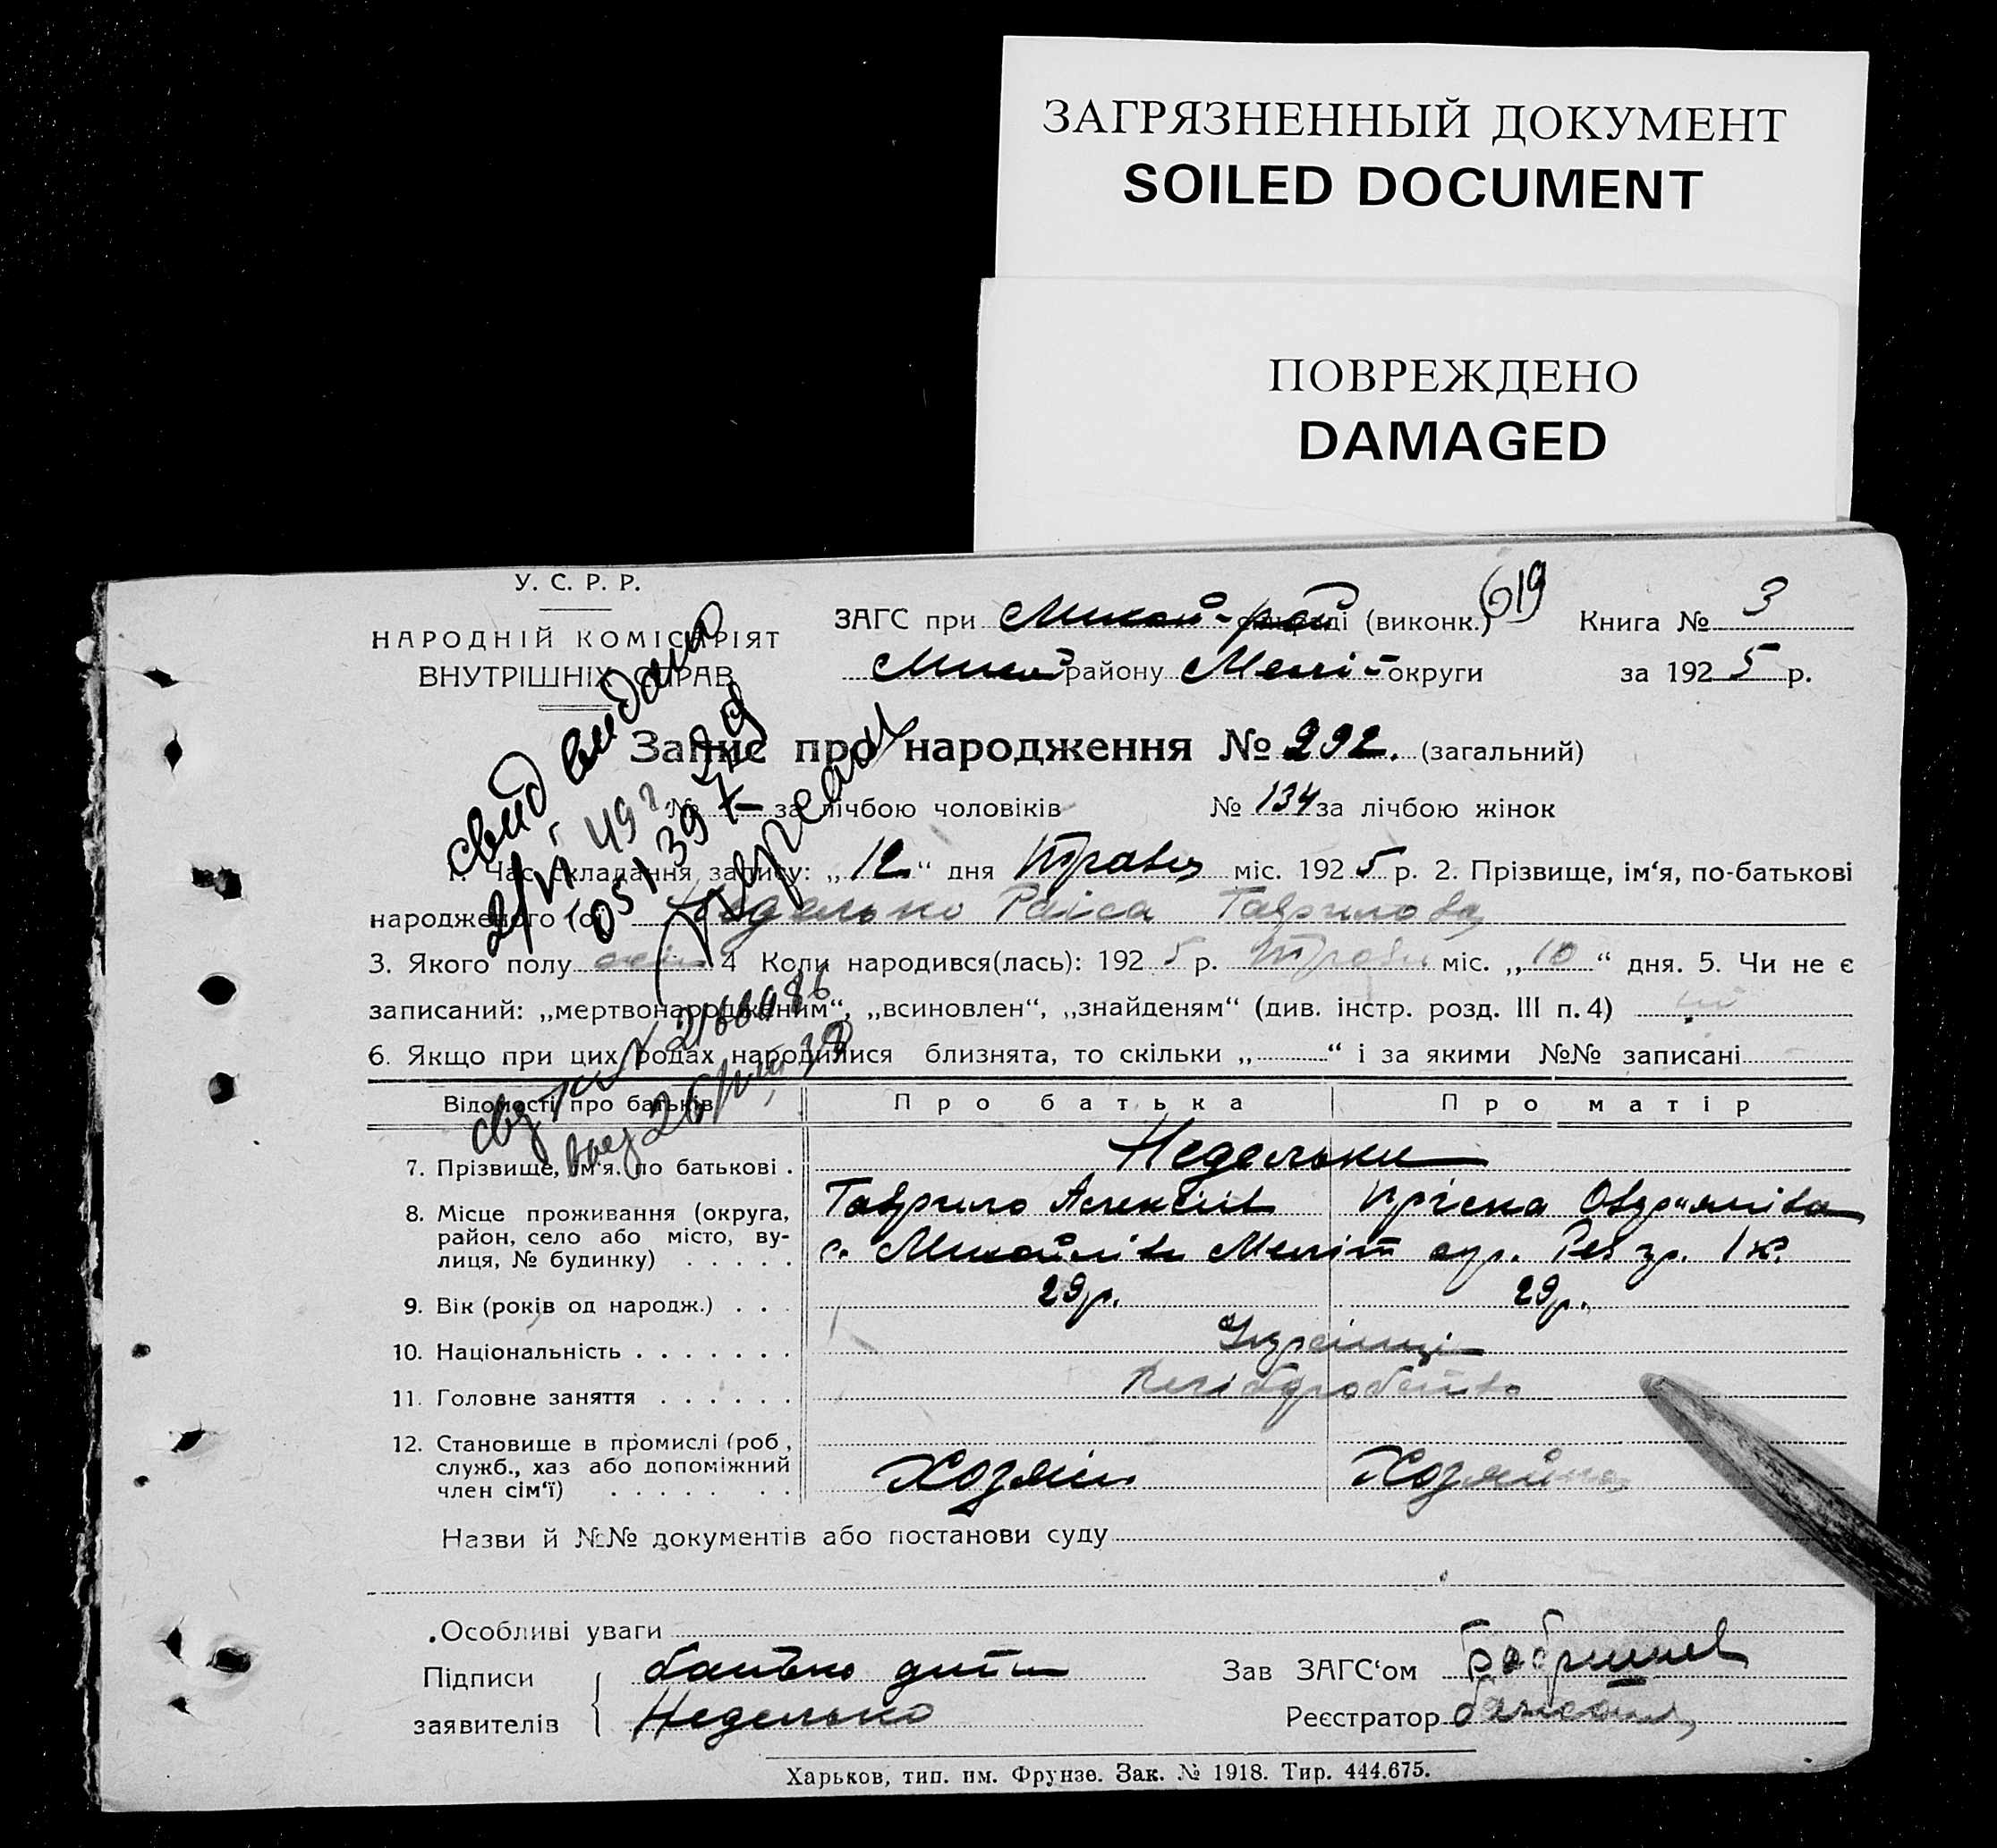 ЗАГРЯЗНЕННЫЙ ДОКУМЕНТ
SOILED DOCUMENT
ПОВРЕЖДЕНО
DAMAGED
619
У. С. Р. Р.
НАРОДНІЙ КОМІСАРІЯТ
ВНУТРІШНІХ СПРАВ
ЗАГС при (виконк.) Книга № 3
району Меліт округи за 1925 р.
Запис про народження № 292. (загальний)
№ за лічбою чоловіків № 134 за лічбою жінок
1. Час складання запису: „12“ дня Травня міс. 1925 р. 2. Прізвище, ім‘я, по-батькові
народженого (ої) Неделько Раіса Гаврилова
3. Якого полу 4 Коли народився(лась): 1925 р. Травня міс. „10“ дня. 5. Чи не є
записаний: „мертвонародженим“, „всиновлен“, „знайденям“ (див. інстр. розд. III п. 4) ні
6. Якщо при цих родах народилися близнята, то скільки „ “ і за якими №№ записані
свид видано
2/VI 49 г.
Відомості про батьків Про батька Про матір
7. Прізвище, ім‘я. по батькові . Недельки
8. Місце проживання (округа, Гаврило Алексіїв
район, село або місто, ву-
лиця, № будинку) . . . . . с. Михайлівка Меліт окр.
9. Вік (років од народж.) . . . 29 р. 29 р.
10. Національність . . . . . . . Українці
11. Головне заняття . . . . . . Хліборобство
12. Становище в промислі (роб.,
служб., хаз або допоміжний
член сім‘ї) . . . . . . . Хозяїн Хозяйка
Назви й №№ документів або постанови суду
Особливі уваги
Підписи батько дитини Зав ЗАГС‘ом
заявителів Неделько Реєстратор
Харьков, тип. им. Фрунзе. Зак. № 1918. Тир. 444.675.